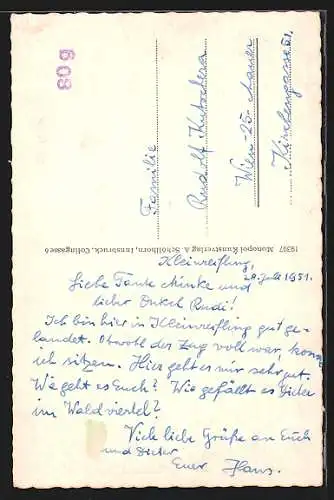 809
Familie
Rudolf Kutschera
Wien-25-Mauer
Kirchengasse 51.
19397 Monopol Kunstverlag A. Schöllhorn, Innsbruck, Collingasse 6
Kleinreifling,
28. Juli 1951.
Liebe Tante Minke und
lieber Onkel Rudi!
Ich bin hier in Kleinreifling gut ge-
landet. Obwohl der Zug voll war, konnte
ich sitzen. Hier geht es mir sehr gut.
Wie geht es Euch? Wie gefällt es Dieter
im Waldviertel?
Viele liebe Grüße an Euch
und Dieter
Euer Hans.